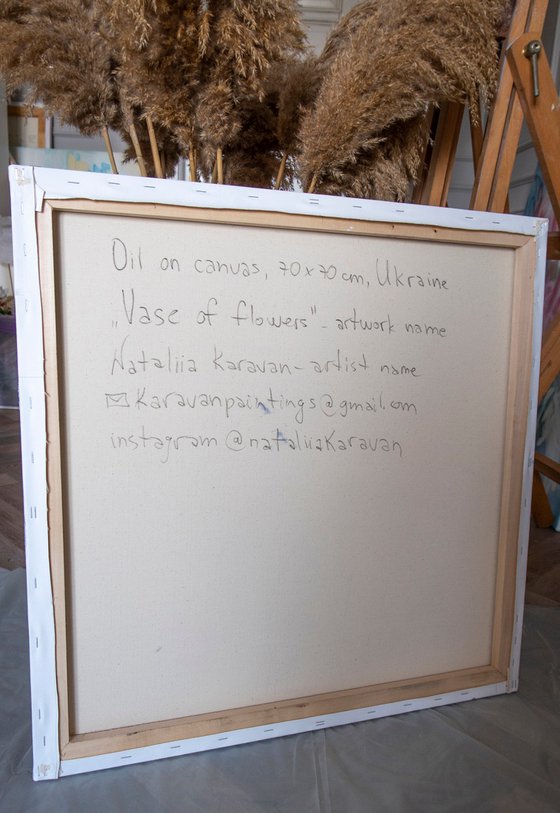 Oil on canvas, 70x70cm, Ukraine
„Vase of flowers" - artwork name
Nataliia Karavan - artist name
✉ Karavanpaintings@gmail.com
instagram @nataliiaKaravan